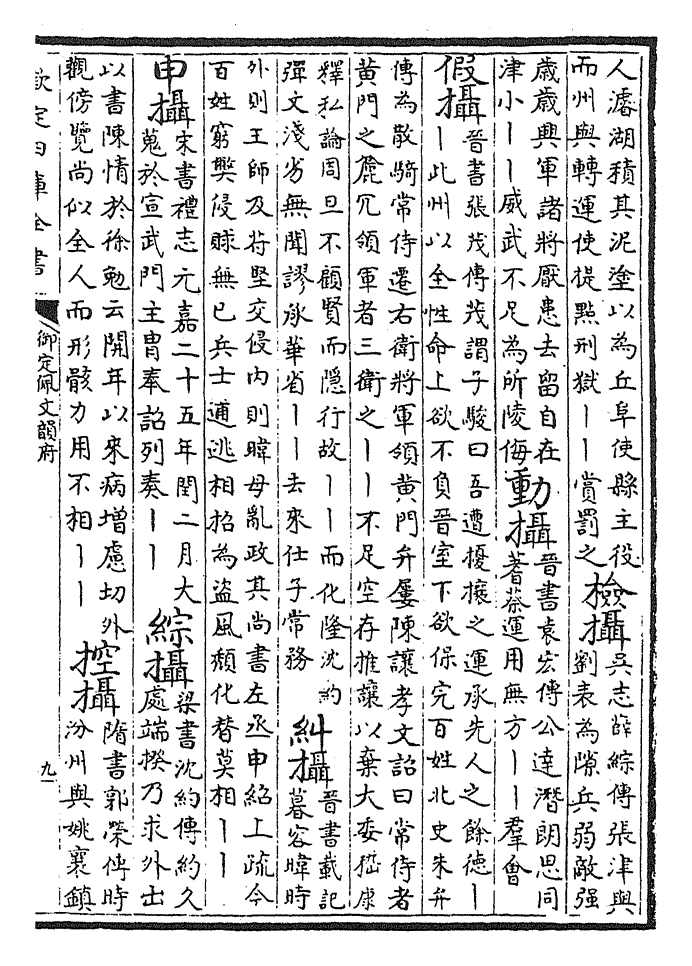 人濬湖積其泥塗以為丘阜使縣主役
而州與轉運使提點刑獄丨丨賞罰之
檢攝
吳志薛綜傳張津與
劉表為隙兵弱敵强
歳歳興軍諸將厭患去留自在
津小丨丨威武不足為所陵侮
動攝
晉書袁宏傳公達潛朗思同
蓍蔡運用無方丨丨羣會
假攝
晉書張茂傳茂謂子駿曰吾遭擾攘之運承先人之餘德丨
丨此州以全性命上欲不負晉室下欲保完百姓北史朱弁
傳為散騎常侍遷右衛將軍領黄門弁屢陳讓孝文詔曰常侍者
黄門之麄冗領軍者三衛之丨丨不足空存推讓以棄大委嵇康
釋私論周旦不顧賢而隠行故丨丨而化隆沈約
彈文淺劣無聞謬承華省丨丨去來仕子常務
糾攝
晉書載記
慕容暐時
外則王師及苻堅交侵内則暐母亂政其尚書左丞申紹上疏今
百姓窮弊侵賕無已兵士逋逃相招為盜風頽化替莫相丨丨
申攝
宋書禮志元嘉二十五年閏二月大
蒐於宣武門主胄奉詔列奏丨丨
綜攝
梁書沈約傳約久
處端揆乃求外出
以書陳情於徐勉云開年以來病增慮切外
觀傍覽尚似全人而形骸力用不相丨丨
控攝
隋書郭榮傳時
汾州與姚襄鎮
欽定四庫全書
御定佩文韻府
九